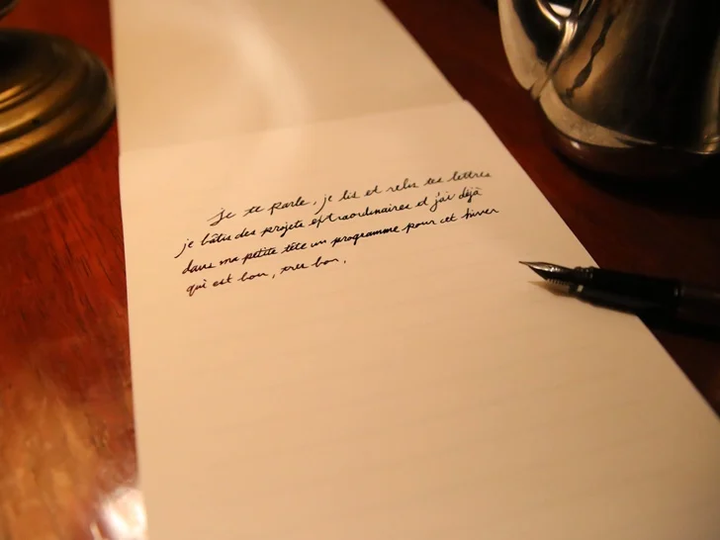 Je te parle, je lis et relis tes lettres
je bâtis des projets extraordinaires et j'ai déjà
dans ma petite tête un programme pour cet hiver
qui est bon, très bon.